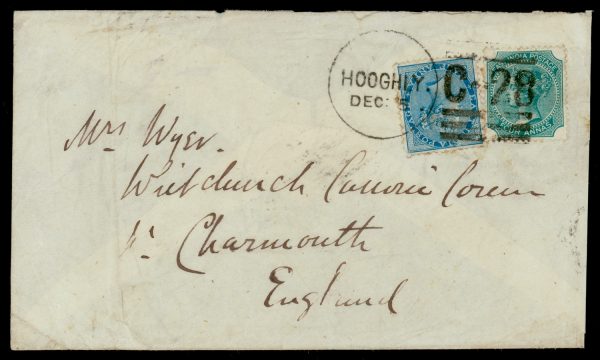 HOOGHLY.
DEC:
C-28
INDIA POSTAGE
FOUR ANNAS
Mrs Wyer.
Witchurch Canonicorum
Nr Charmouth
England